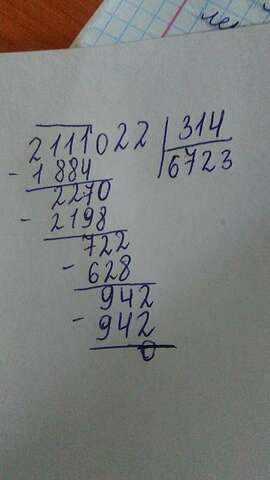 2111022 314
- 1884 6723
2270
- 2198
722
- 628
942
- 942
0